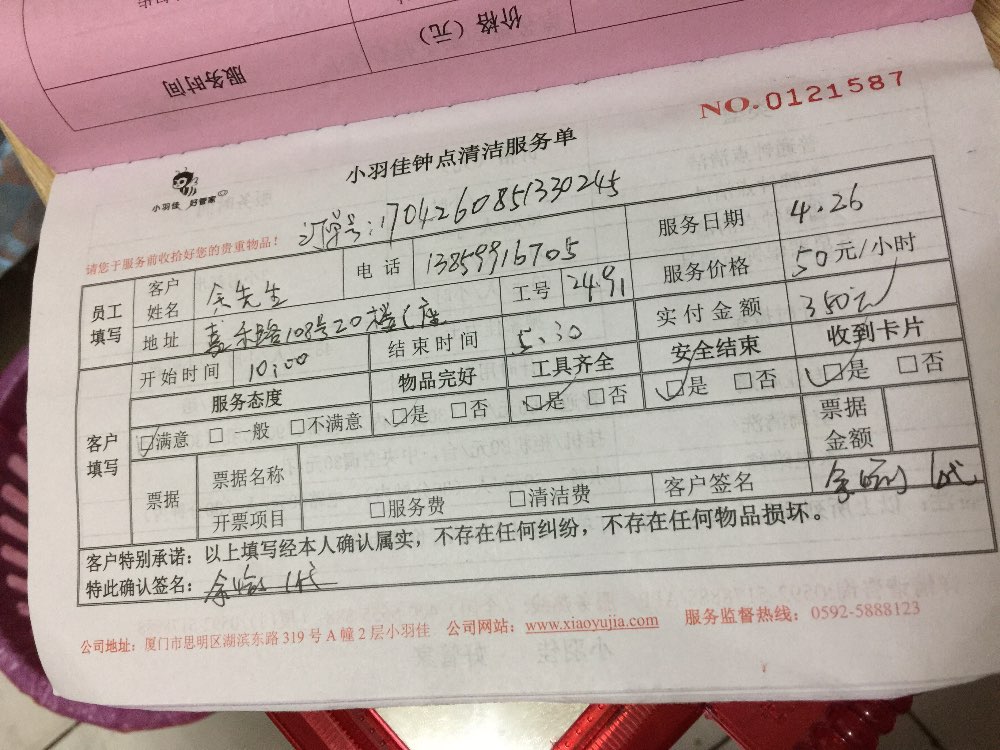 价格（元）
服务时间
NO.0121587
小羽佳钟点清洁服务单
小羽佳 好管家
请您于服务前收拾好您的贵重物品！
订单号:1704260851330245
员工填写 客户姓名 余先生 电话 13859916705 服务日期 4.26
地址 嘉禾路108号20楼C座 工号 2491 服务价格 50元/小时
开始时间 10:00 结束时间 5:30 实付金额 350元
客户填写 服务态度 物品完好 工具齐全 安全结束 收到卡片
☑满意 □一般 □不满意 ☑是 □否 ☑是 □否 ☑是 □否 ☑是 □否
票据 票据名称 票据金额
开票项目 □服务费 □清洁费 客户签名 余 代
客户特别承诺：以上填写经本人确认属实，不存在任何纠纷，不存在任何物品损坏。
特此确认签名： 余 代
公司地址：厦门市思明区湖滨东路 319 号 A 幢 2 层小羽佳 公司网站：www.xiaoyujia.com 服务监督热线：0592-5888123